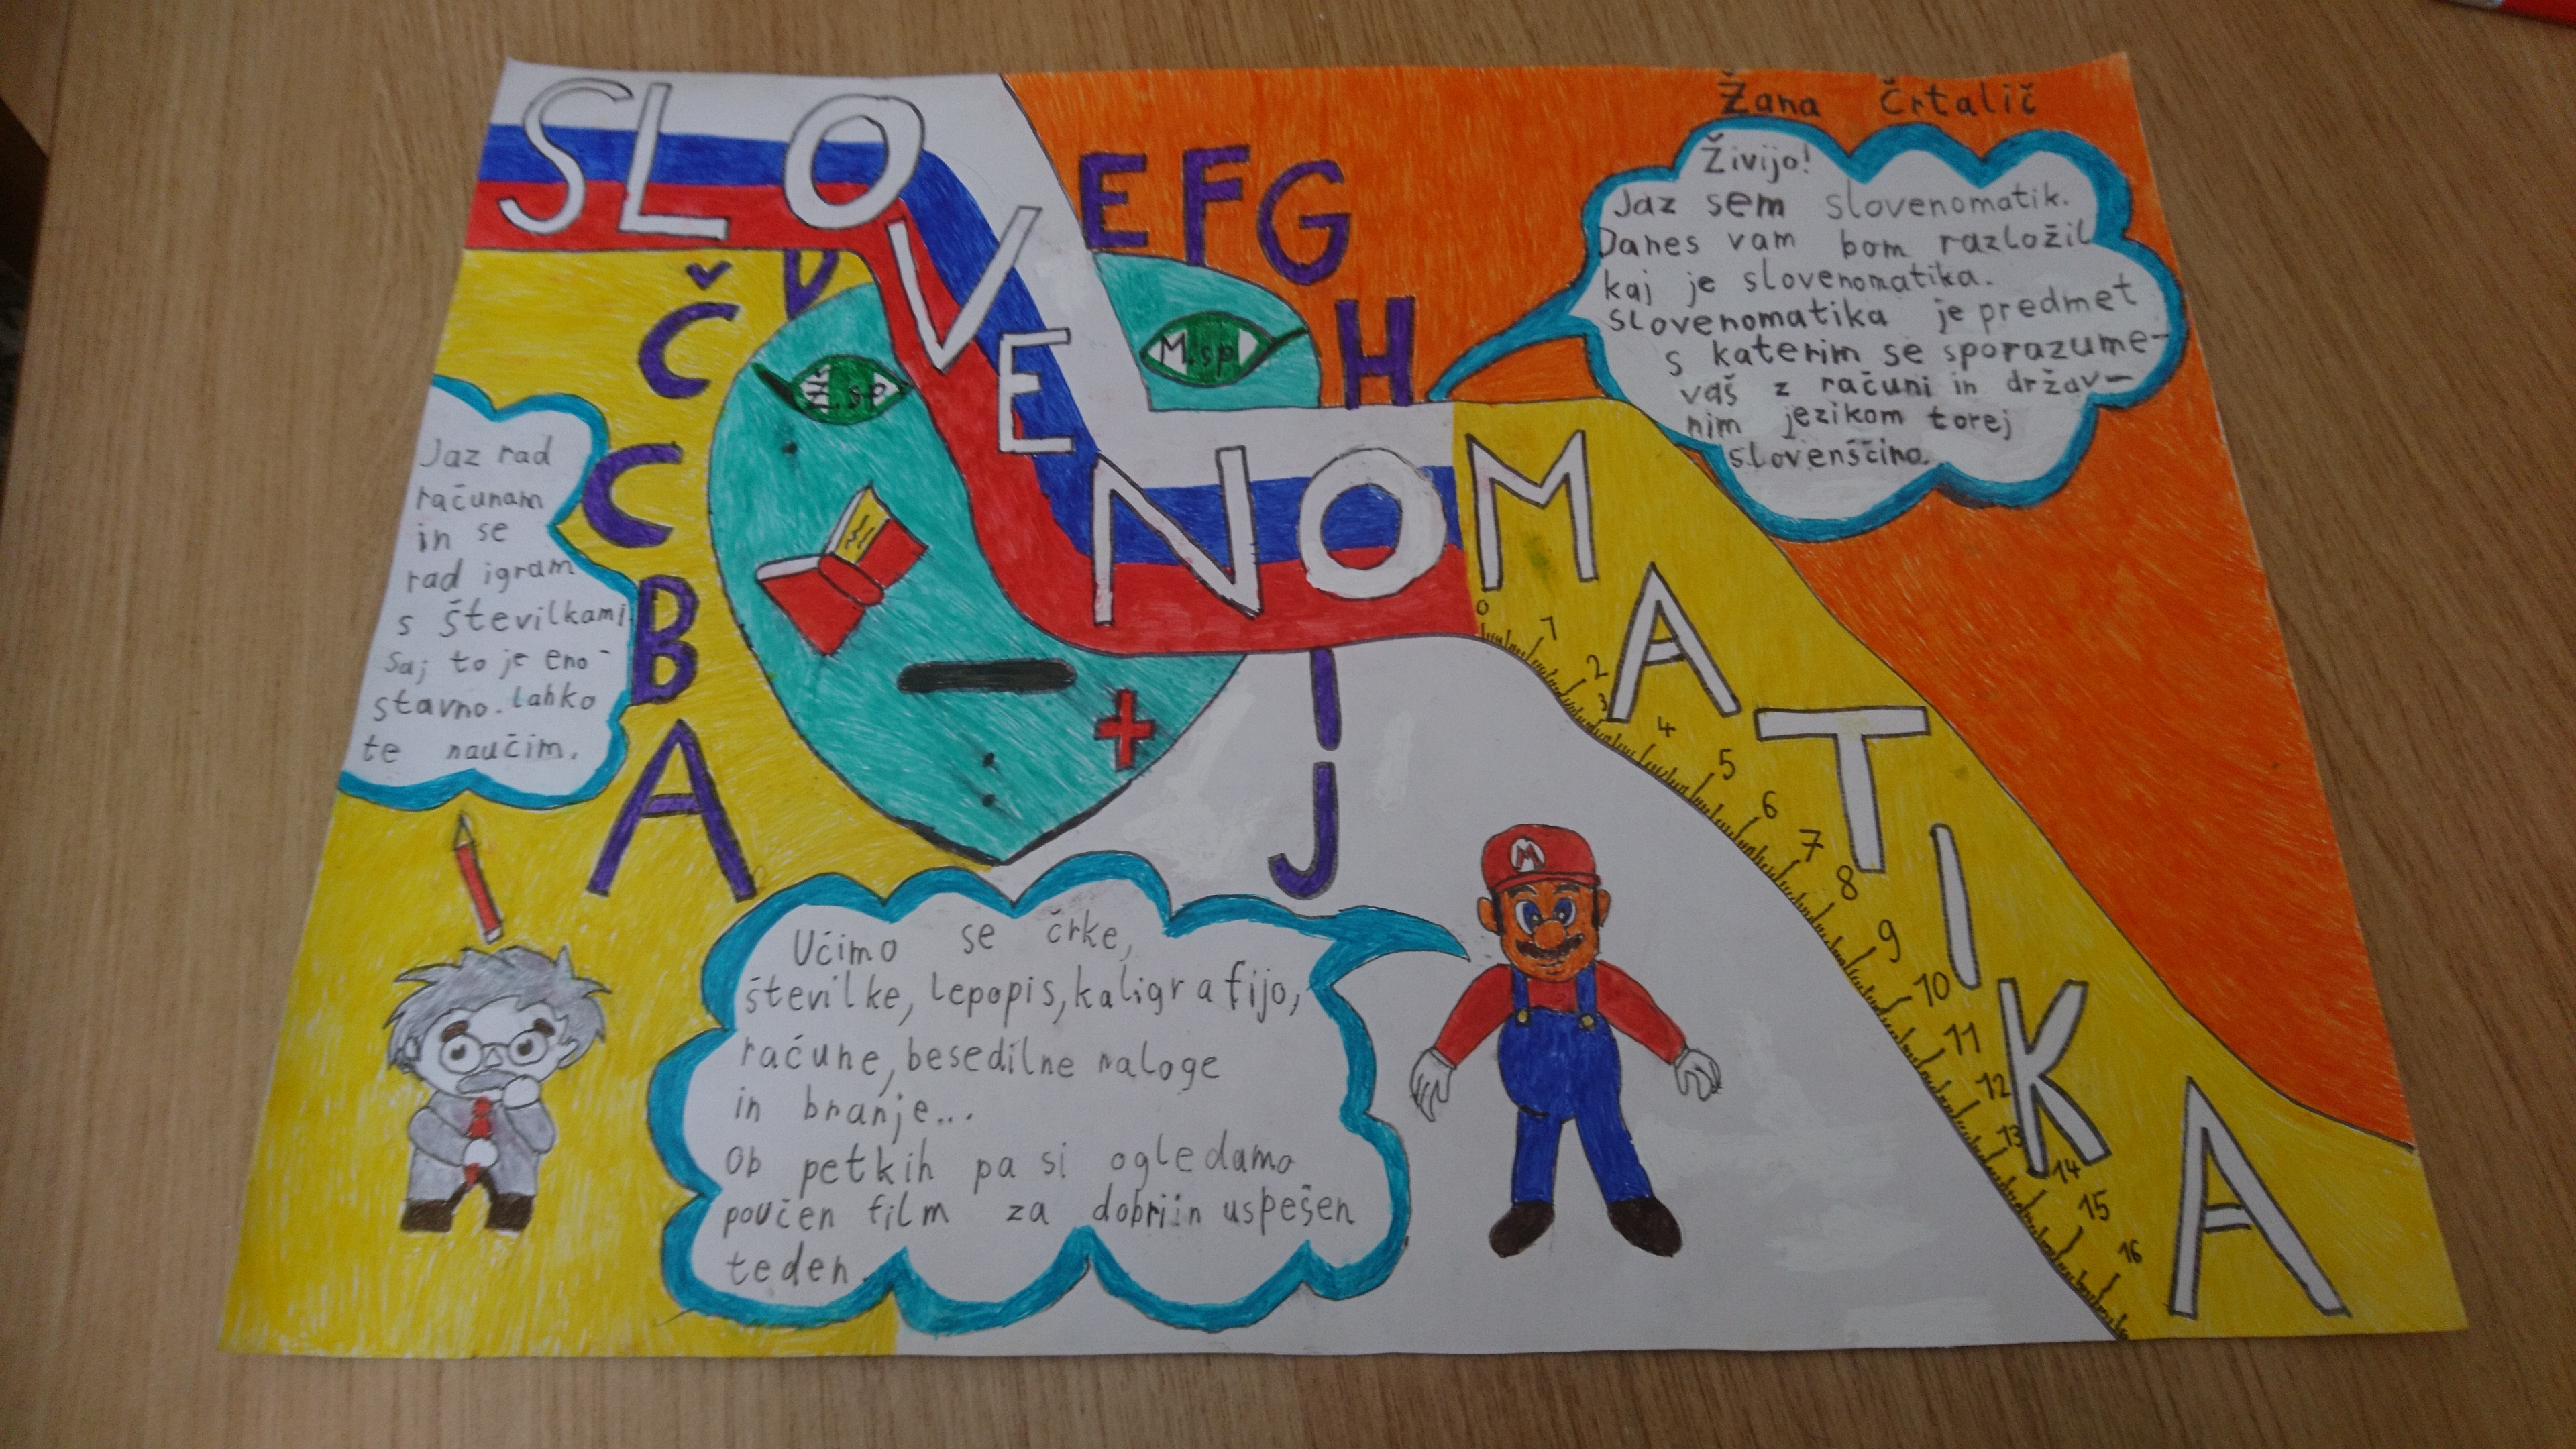 Žana Črtalič
SLOVENOMATIKA
A B C Č D E F G H I J
Ž.sp
M.sp
Živijo!
Jaz sem slovenomatik.
Danes vam bom razložil
kaj je slovenomatika.
slovenomatika je predmet
s katerim se sporazume-
vaš z računi in držav-
nim jezikom torej
slovenščino.
Jaz rad
računam
in se
rad igram
s številkami
saj to je eno-
stavno. lahko
te naučim.
Učimo se črke,
številke, lepopis, kaligrafijo,
račune, besedilne naloge
in branje...
Ob petkih pa si ogledamo
poučen film za dobri in uspešen
teden.
M
0 1 2 3 4 5 6 7 8 9 10 11 12 13 14 15 16